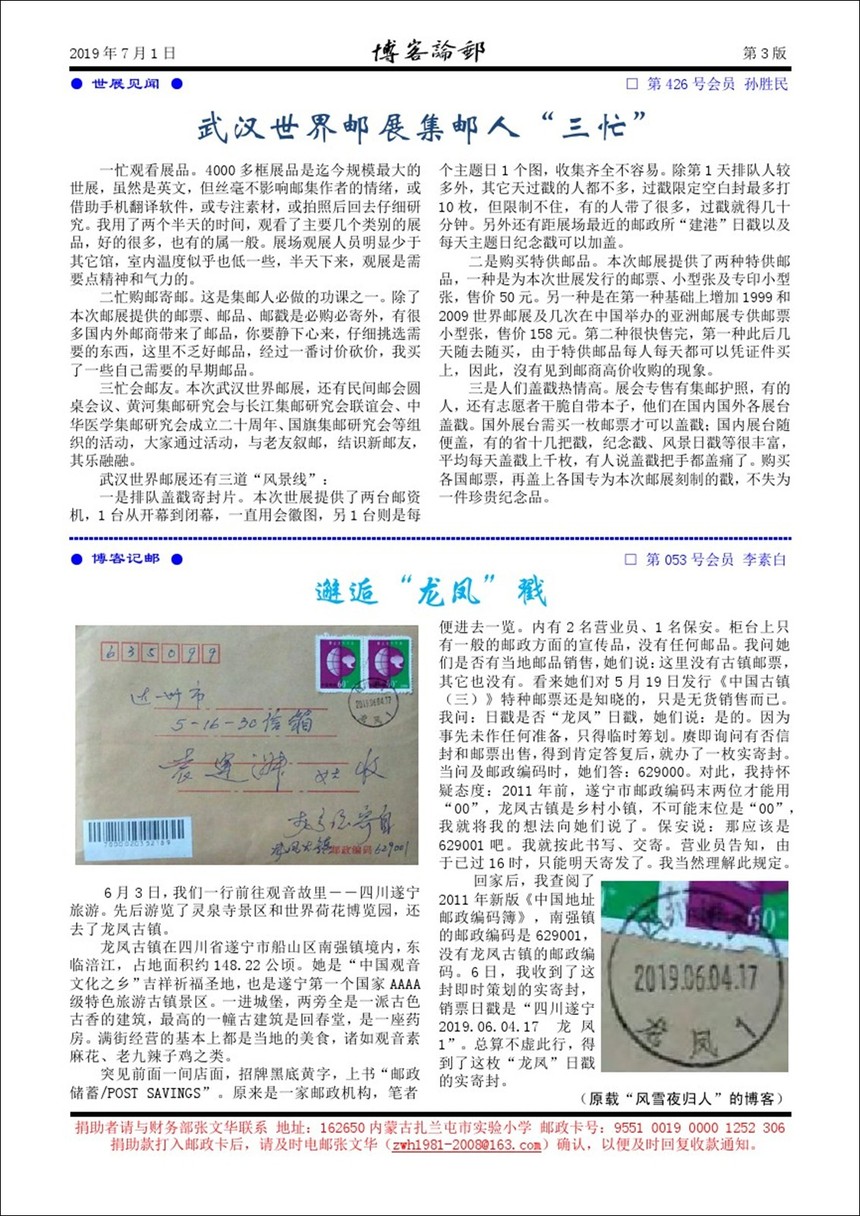 2019年7月1日
博客論郵
第3版
● 世展见闻 ●
□ 第426号会员 孙胜民
武汉世界邮展集邮人“三忙”
一忙观看展品。4000多框展品是迄今规模最大的
世展，虽然是英文，但丝毫不影响邮集作者的情绪，或
借助手机翻译软件，或专注素材，或拍照后回去仔细研
究。我用了两个半天的时间，观看了主要几个类别的展
品，好的很多，也有的属一般。展场观展人员明显少于
其它馆，室内温度似乎也低一些，半天下来，观展是需
要点精神和气力的。
二忙购邮寄邮。这是集邮人必做的功课之一。除了
本次邮展提供的邮票、邮品、邮戳是必购必寄外，有很
多国内外邮商带来了邮品，你要静下心来，仔细挑选需
要的东西，这里不乏好邮品，经过一番讨价砍价，我买
了一些自己需要的早期邮品。
三忙会邮友。本次武汉世界邮展，还有民间邮会圆
桌会议、黄河集邮研究会与长江集邮研究会联谊会、中
华医学集邮研究会成立二十周年、国旗集邮研究会等组
织的活动，大家通过活动，与老友叙邮，结识新邮友，
其乐融融。
武汉世界邮展还有三道“风景线”：
一是排队盖戳寄封片。本次世展提供了两台邮资
机，1台从开幕到闭幕，一直用会徽图，另1台则是每
个主题日1个图，收集齐全不容易。除第1天排队人较
多外，其它天过戳的人都不多，过戳限定空白封最多打
10枚，但限制不住，有的人带了很多，过戳就得几十
分钟。另外还有距展场最近的邮政所“建港”日戳以及
每天主题日纪念戳可以加盖。
二是购买特供邮品。本次邮展提供了两种特供邮
品，一种是为本次世展发行的邮票、小型张及专印小型
张，售价50元。另一种是在第一种基础上增加1999和
2009世界邮展及几次在中国举办的亚洲邮展专供邮票
小型张，售价158元。第二种很快售完，第一种此后几
天随去随买，由于特供邮品每人每天都可以凭证件买
上，因此，沒有见到邮商高价收购的现象。
三是人们盖戳热情高。展会专售有集邮护照，有的
人，还有志愿者干脆自带本子，他们在国内国外各展台
盖戳。国外展台需买一枚邮票才可以盖戳；国内展台随
便盖，有的省十几把戳，纪念戳、风景日戳等很丰富，
平均每天盖戳上千枚，有人说盖戳把手都盖痛了。购买
各国邮票，再盖上各国专为本次邮展刻制的戳，不失为
一件珍贵纪念品。
● 博客记邮 ●
□ 第053号会员 李素白
邂逅“龙凤”戳
635099
达州市
5-16-30信箱
收
邮政编码 629001
60
2019.06.04.17
龙凤1
6月3日，我们一行前往观音故里——四川遂宁
旅游。先后游览了灵泉寺景区和世界荷花博览园，还
去了龙凤古镇。
龙凤古镇在四川省遂宁市船山区南强镇境内，东
临涪江，占地面积约148.22公顷。她是“中国观音
文化之乡”吉祥祈福圣地，也是遂宁第一个国家AAAA
级特色旅游古镇景区。一进城堡，两旁全是一派古色
古香的建筑，最高的一幢古建筑是回春堂，是一座药
房。满街经营的基本上都是当地的美食，诸如观音素
麻花、老九辣子鸡之类。
突见前面一间店面，招牌黑底黄字，上书“邮政
储蓄/POST SAVINGS”。原来是一家邮政机构，笔者
便进去一览。内有2名营业员、1名保安。柜台上只
有一般的邮政方面的宣传品，没有任何邮品。我问她
们是否有当地邮品销售，她们说：这里没有古镇邮票，
其它也没有。看来她们对5月19日发行《中国古镇
（三）》特种邮票还是知晓的，只是无货销售而已。
我问：日戳是否“龙凤”日戳，她们说：是的。因为
事先未作任何准备，只得临时筹划。赓即询问有否信
封和邮票出售，得到肯定答复后，就办了一枚实寄封。
当问及邮政编码时，她们答：629000。对此，我持怀
疑态度：2011年前，遂宁市邮政编码末两位才能用
“00”，龙凤古镇是乡村小镇，不可能末位是“00”，
我就将我的想法向她们说了。保安说：那应该是
629001吧。我就按此书写、交寄。营业员告知，由
于已过16时，只能明天寄发了。我当然理解此规定。
回家后，我查阅了
2011年新版《中国地址
邮政编码簿》，南强镇
的邮政编码是629001，
没有龙凤古镇的邮政编
码。6日，我收到了这
封即时策划的实寄封，
销票日戳是“四川遂宁
2019.06.04.17 龙凤
1”。总算不虚此行，得
到了这枚“龙凤”日戳
的实寄封。
60
2019.06.04.17
龙凤1
（原载“风雪夜归人”的博客）
捐助者请与财务部张文华联系 地址：162650内蒙古扎兰屯市实验小学 邮政卡号：9551 0019 0000 1252 306
捐助款打入邮政卡后，请及时电邮张文华（zwh1981-2008@163.com）确认，以便及时回复收款通知。